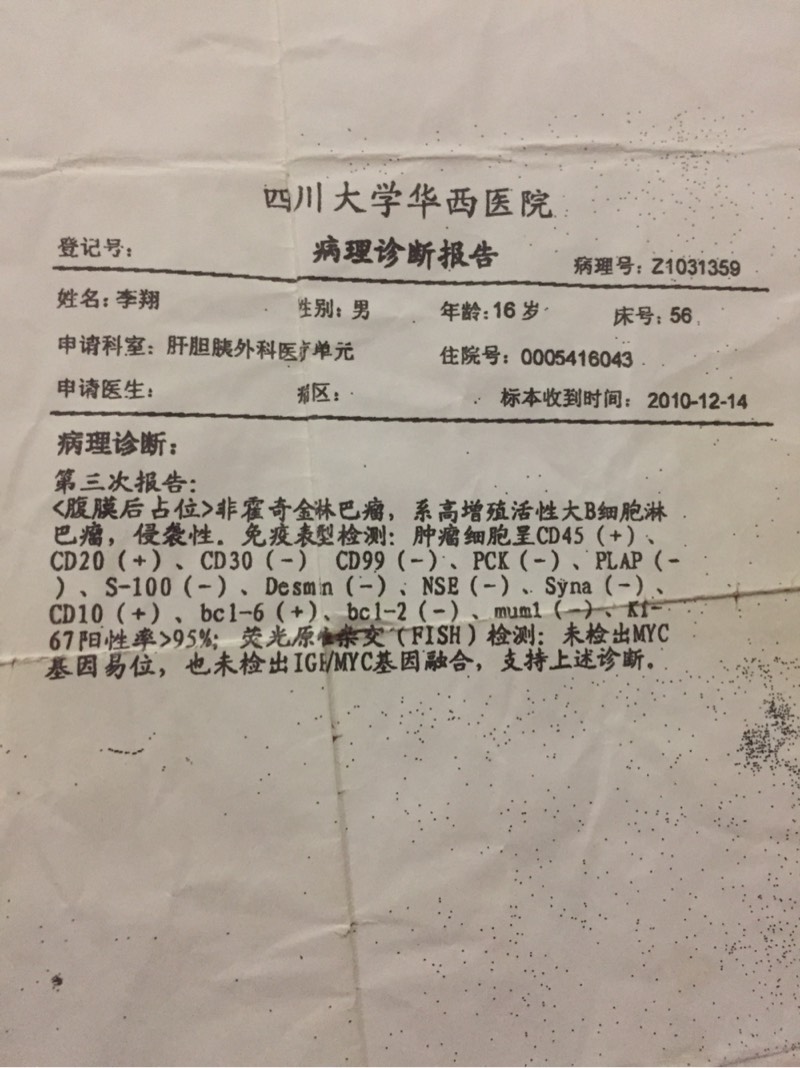 四川大学华西医院
登记号： 病理诊断报告 病理号：Z1031359
姓名：李翔 性别：男 年龄：16岁 床号：56
申请科室：肝胆胰外科医疗单元 住院号：0005416043
申请医生： 病区： 标本收到时间： 2010-12-14
病理诊断：
第三次报告：
<腹膜后占位>非霍奇金淋巴瘤，系高增殖活性大B细胞淋
巴瘤，侵袭性．免疫表型检测：肿瘤细胞呈CD45（+）、
CD20（+）、CD30（-） CD99（-）、PCK（-）、PLAP（-
）、S-100（-）、Desmin（-）、NSE（-）、Syna（-）、
CD10（+）、bcl-6（+）、bcl-2（-）、mum1（-）、Ki-
67阳性率>95%；荧光原位杂交（FISH）检测：未检出MYC
基因易位，也未检出IGH/MYC基因融合，支持上述诊断．